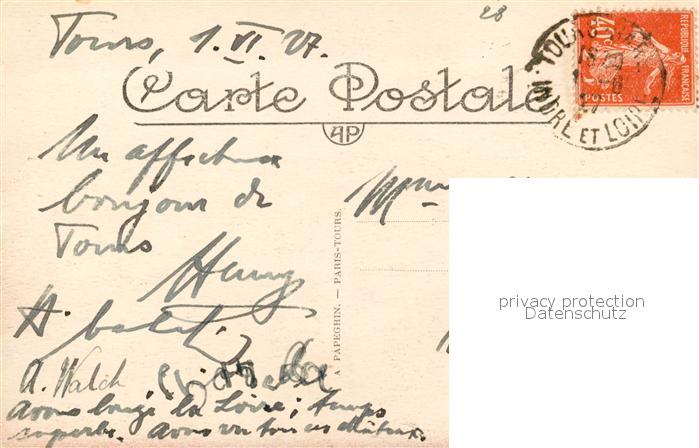 28
Tours, 1. VI. 27.
40c
POSTES
REPUBLIQUE FRANCAISE
TOURS
INDRE ET LOIRE
Carte Postale
AP
Un affectueux
bonjour de
Tours
A PAPEGHIN. — PARIS-TOURS.
privacy protection
Datenschutz
A. Walch
Avons longé la Loire; temps
superbe. Avons vu tous ces châteaux.